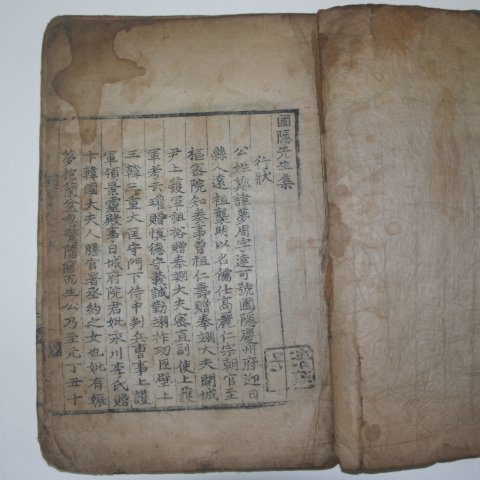 圃隱先生集
行狀
公姓鄭諱夢周字達可號圃隱慶州府迎日
縣人遠祖襲明以名儒仕高麗仁宗朝官至
樞密院知奏事曾祖仁壽贈奉翊大夫開城
尹上護軍祖裕贈奉翊大夫密直副使上護
軍考云瓘贈愼德守義誠勤翊祚功臣壁上
三韓三重大匡守門下侍中判兵曹事上護
軍領景靈殿事日城府院君妣永川李氏贈
卞韓國大夫人膳官署丞約之女也妣有娠
夢抱蘭盆忽驚墮寤而生公乃至元丁丑十